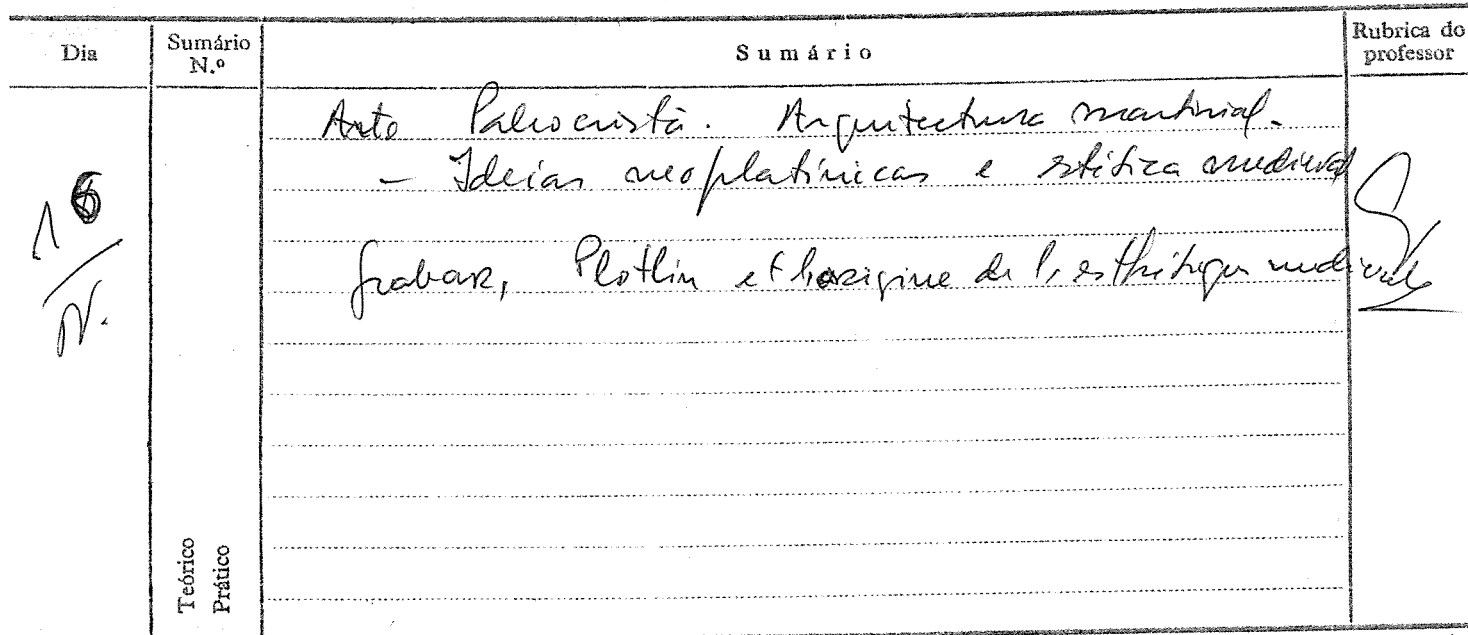 Dia
Sumário N.º
Sumário
Rubrica do professor
Arte Paleocristã. Arquitectura martirial.
– Ideias neoplatónicas e estética medieval
16
Grabar, Plotin et l'origine de l'esthétique médiévale
Teórico
Prático